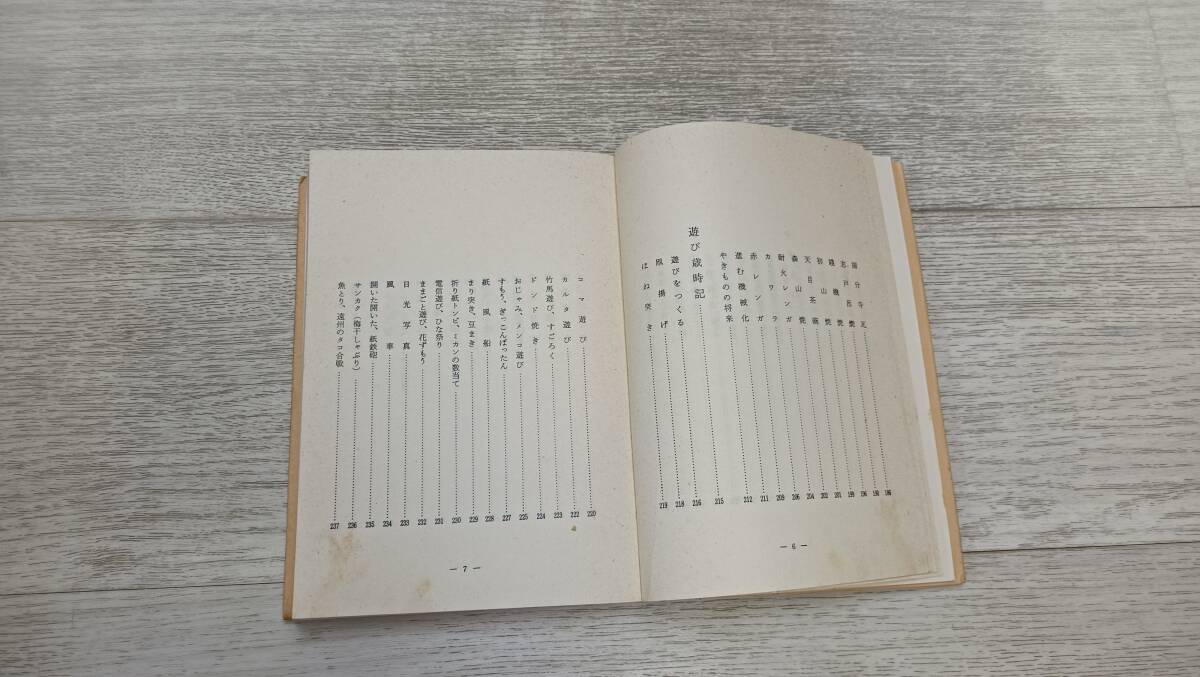 国分寺瓦……190
志戸呂焼……196
焼……199
初山焼……201
天目茶碗……202
森山焼……204
耐火レンガ……206
カワラ……209
赤レンガ……211
進む機械化……212
やきものの将来……215
遊び歳時記……216
遊びをつくる……218
凧揚げ……219
はね突き
— 6 —
コマ遊び……220
カルタ遊び……222
竹馬遊び、すごろく……223
ドンド焼き……224
おじゃみ、メンコ遊び……225
すもう、ぎっこんばったん……227
紙風船……228
まり突き、豆まき……229
折り紙トンビ、ミカンの数当て……230
電信遊び、ひな祭り……231
ままごと遊び、花ずもう……232
日光写真……233
風車……234
開いた開いた、紙鉄砲……235
サンカク(梅干しゃぶり)……236
魚とり、遠州のタコ合戦……237
— 7 —